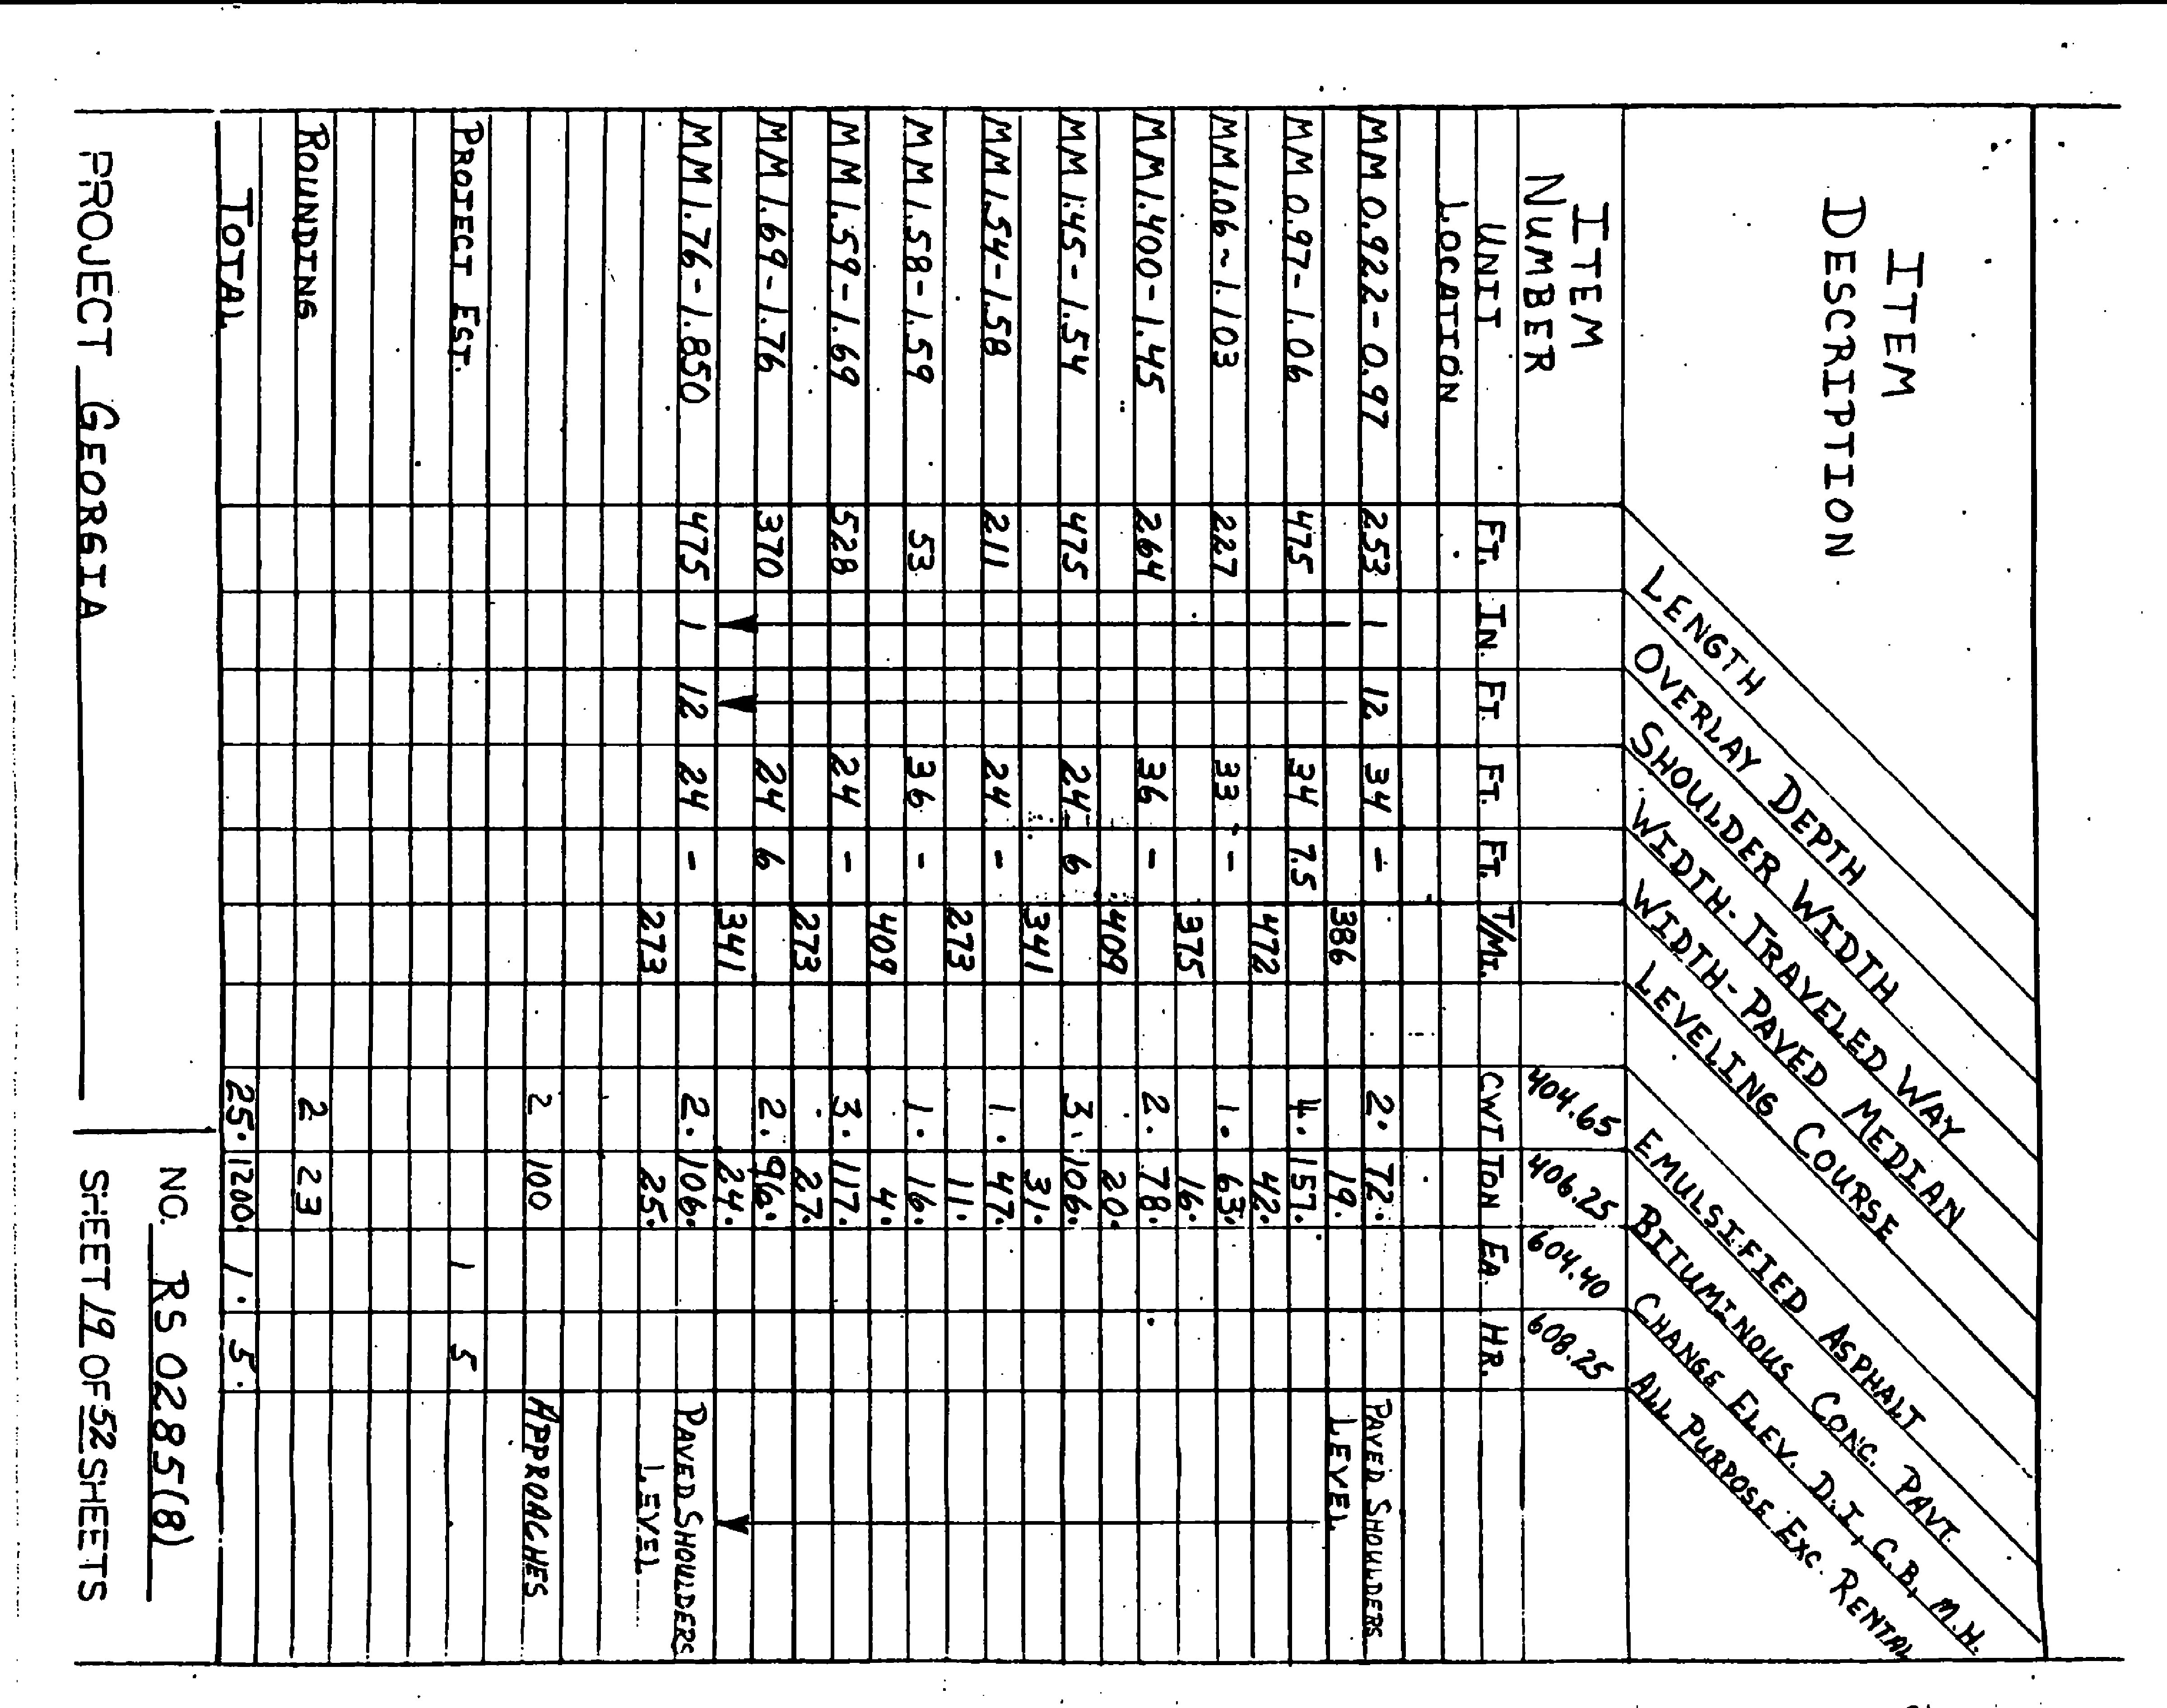 ITEM DESCRIPTION
LENGTH
OVERLAY DEPTH
SHOULDER WIDTH
WIDTH-TRAVELED WAY
WIDTH-PAVED MEDIAN
LEVELING COURSE
EMULSIFIED ASPHALT
BITUMINOUS CONC. PAVT.
CHANGE ELEV. D.I., C.B., M.H.
ALL PURPOSE EXC. RENTAL
ITEM NUMBER 404.65 406.25 604.40 608.25
UNIT FT. IN. FT. FT. FT. T/MI. CWT TON EA. HR.
LOCATION
MM 0.922-0.97 253 1 12 34 - 2. 72. PAVED SHOULDERS
386 19. LEVEL
MM 0.97-1.06 475 34 7.5 4. 157.
472 42.
MM 1.06-1.103 227 33 - 1. 63.
375 16.
MM 1.400-1.45 264 36 - 2. 78.
409 20.
MM 1.45-1.54 475 24 6 3. 106.
341 31.
MM 1.54-1.58 211 24 - 1. 47.
273 11.
MM 1.58-1.59 53 36 - 1. 16.
409 4.
MM 1.59-1.69 528 24 - 3. 117.
273 27.
MM 1.69-1.76 370 24 6 2. 96.
341 24.
MM 1.76-1.850 475 1 12 24 - 2. 106. PAVED SHOULDERS
273 25. LEVEL
2 100 APPROACHES
PROJECT EST. 1 5
ROUNDING 2 23
TOTAL 25. 1200. 1. 5.
PROJECT GEORGIA NO. RS 0285(8)
SHEET 19 OF 52 SHEETS